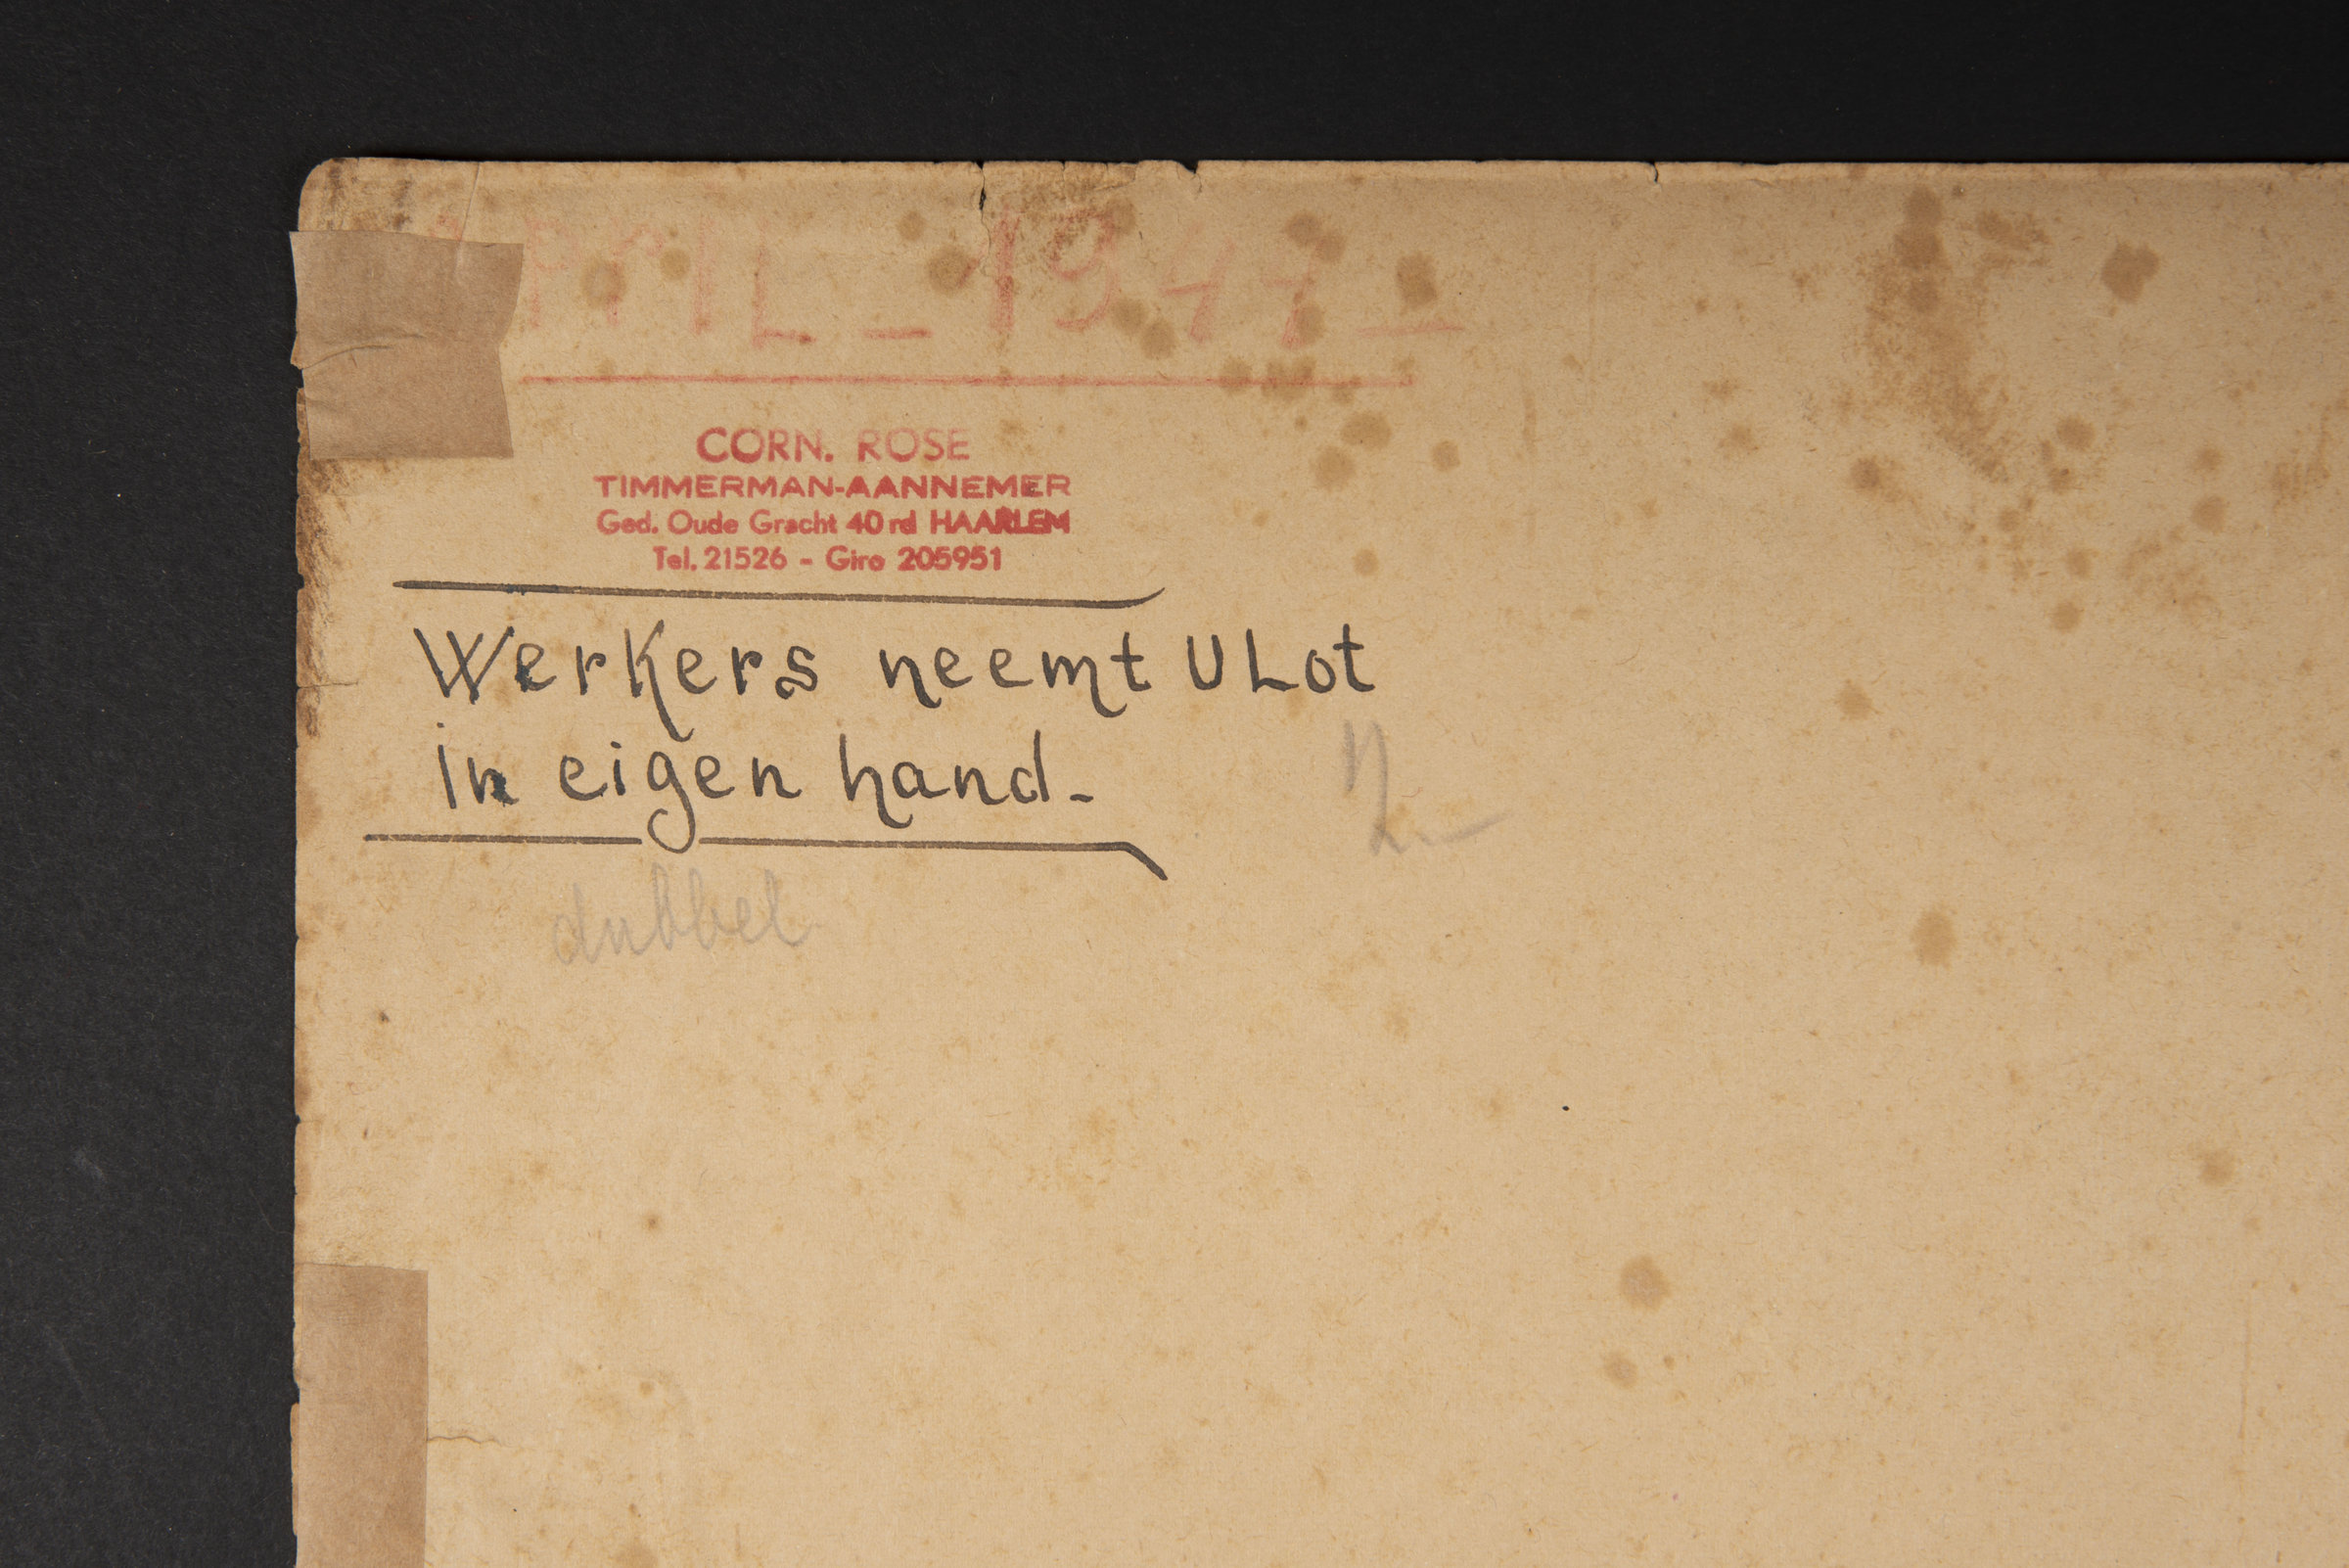 APrIL - 1947 -
CORN. ROSE
TIMMERMAN-AANNEMER
Ged. Oude Gracht 40 rd HAARLEM
Tel. 21526 - Giro 205951
Werkers neemt U Lot
in eigen hand -
dubbel